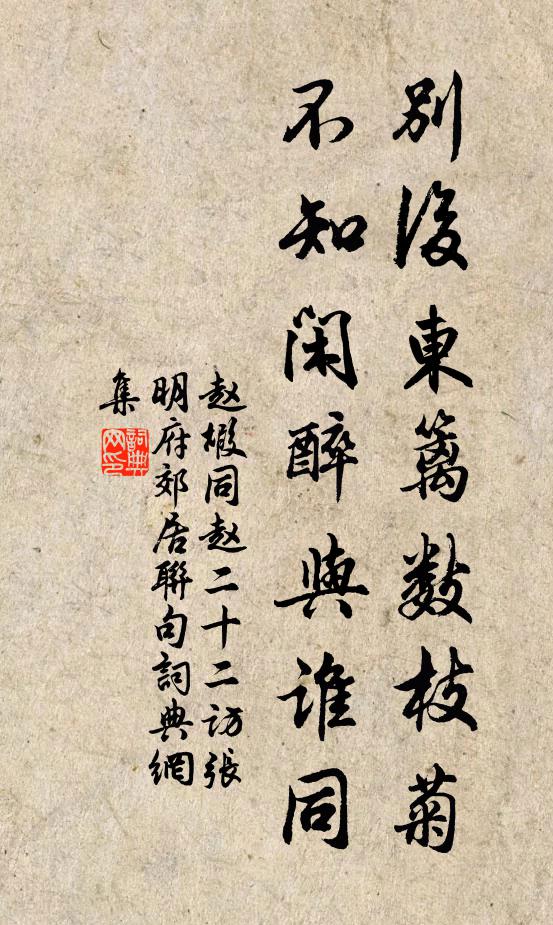 別後東籬數枝菊
不知閑醉與誰同
赵嘏同赵二十二訪張
明府郊居聯句詞典網
集
詞典網印